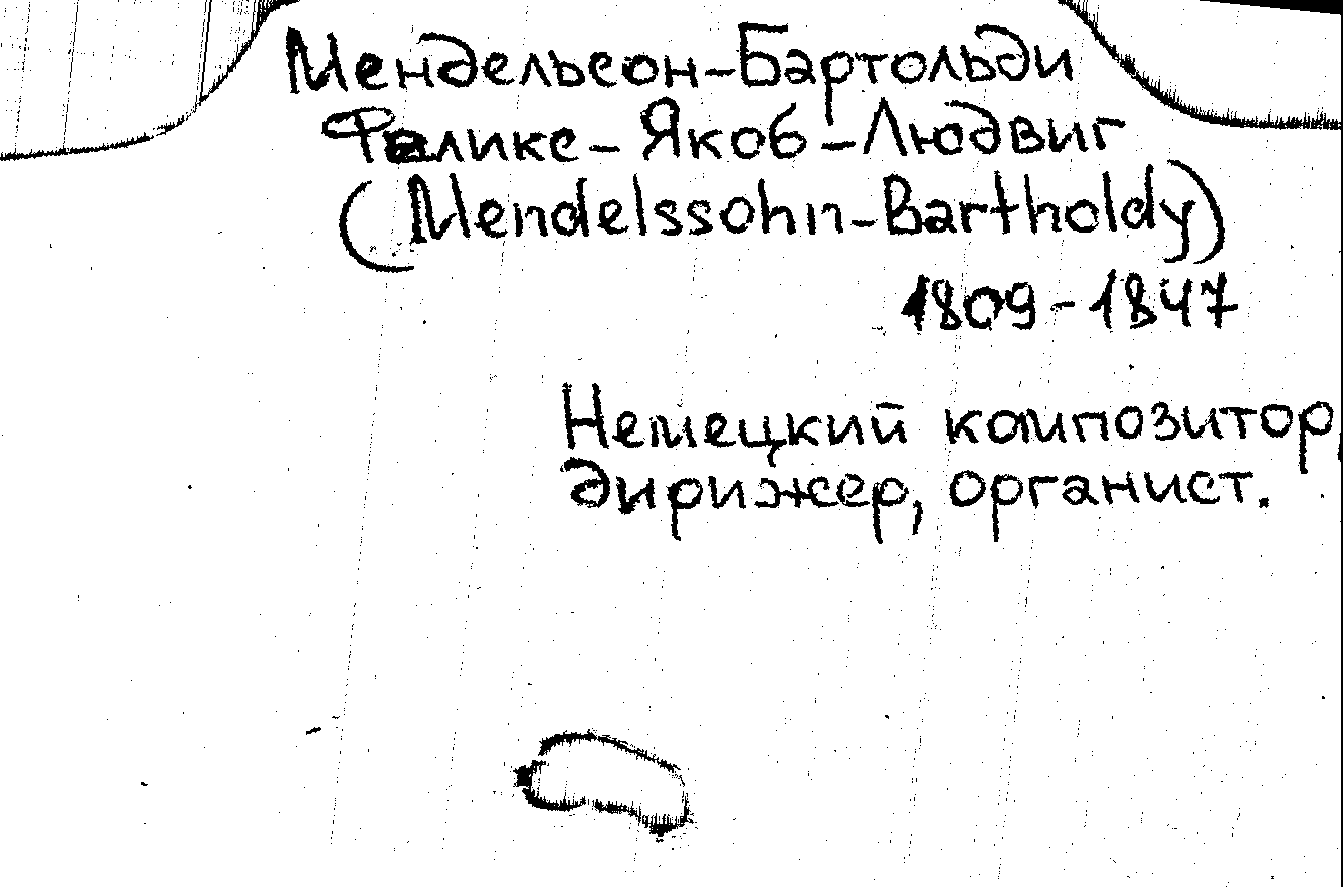 Мендельсон-Бартольди
Феликс-Якоб-Людвиг
(Mendelssohn-Bartholdy)
1809-1847
Немецкий композитор,
дирижер, органист.